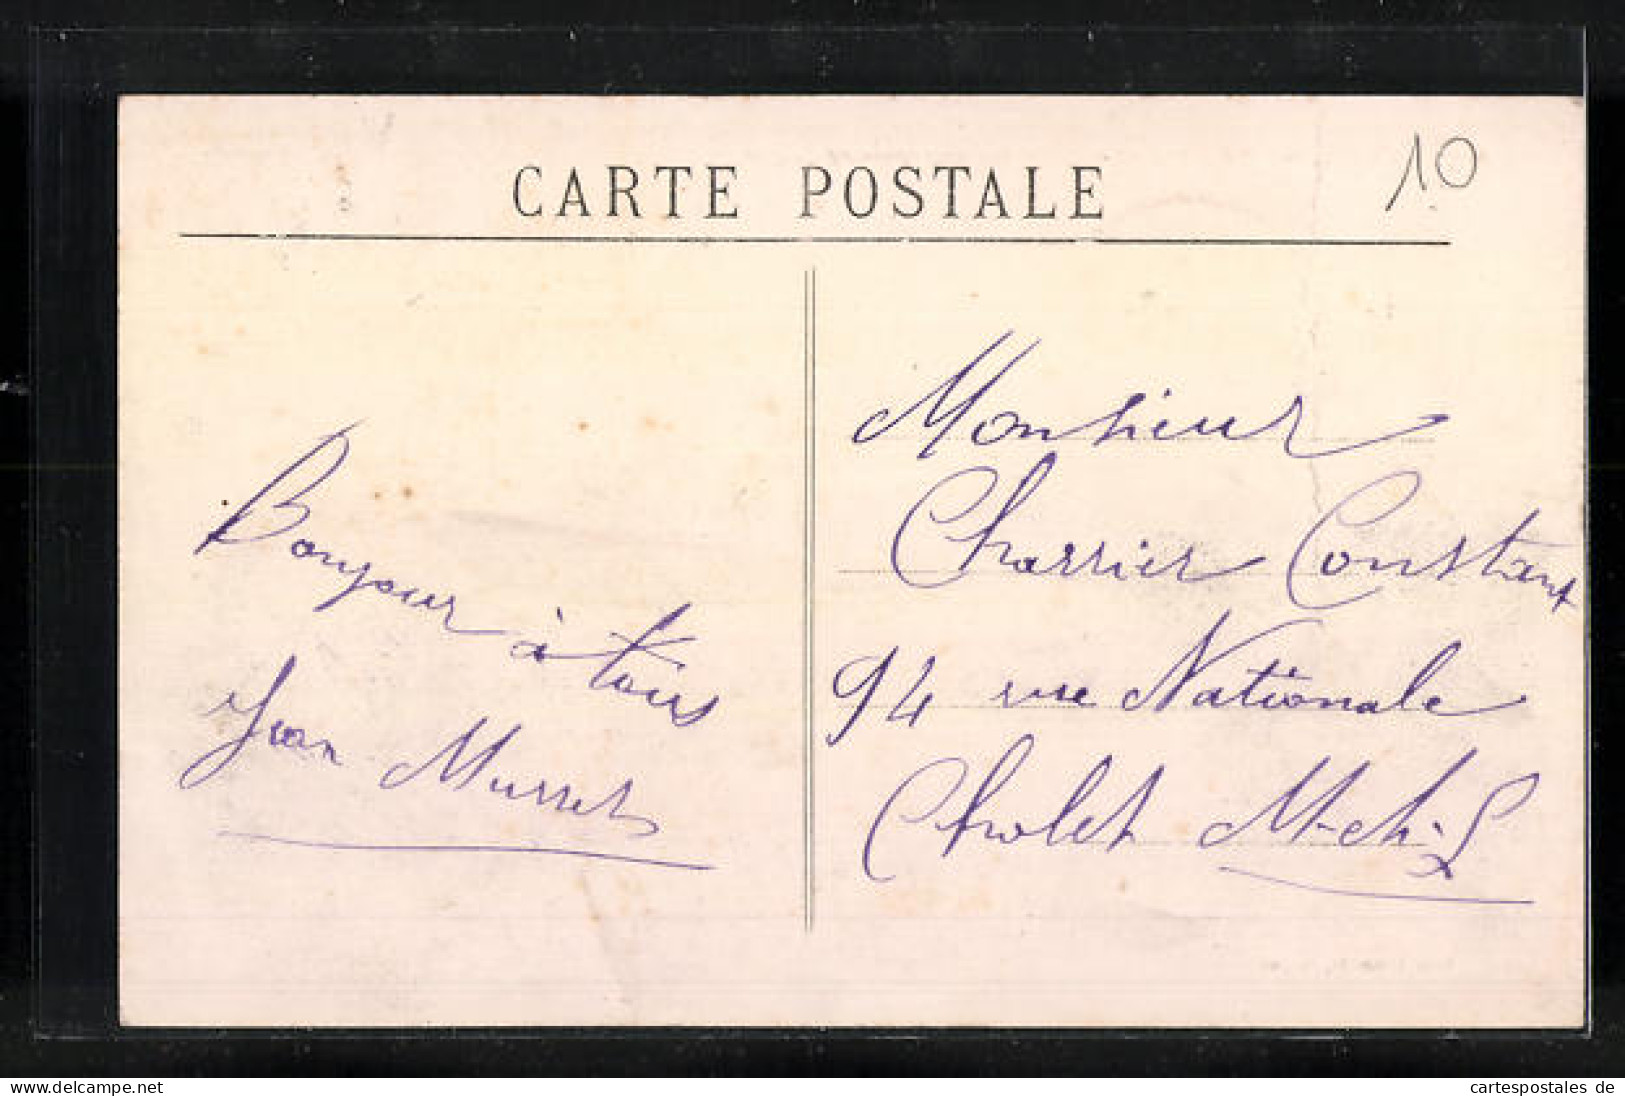 CARTE POSTALE
10
Bonjour à tous
Jean Musset
Monsieur
Charrier Constant
94 rue Nationale
Cholet M-et-L
www.delcampe.net
cartespostales de